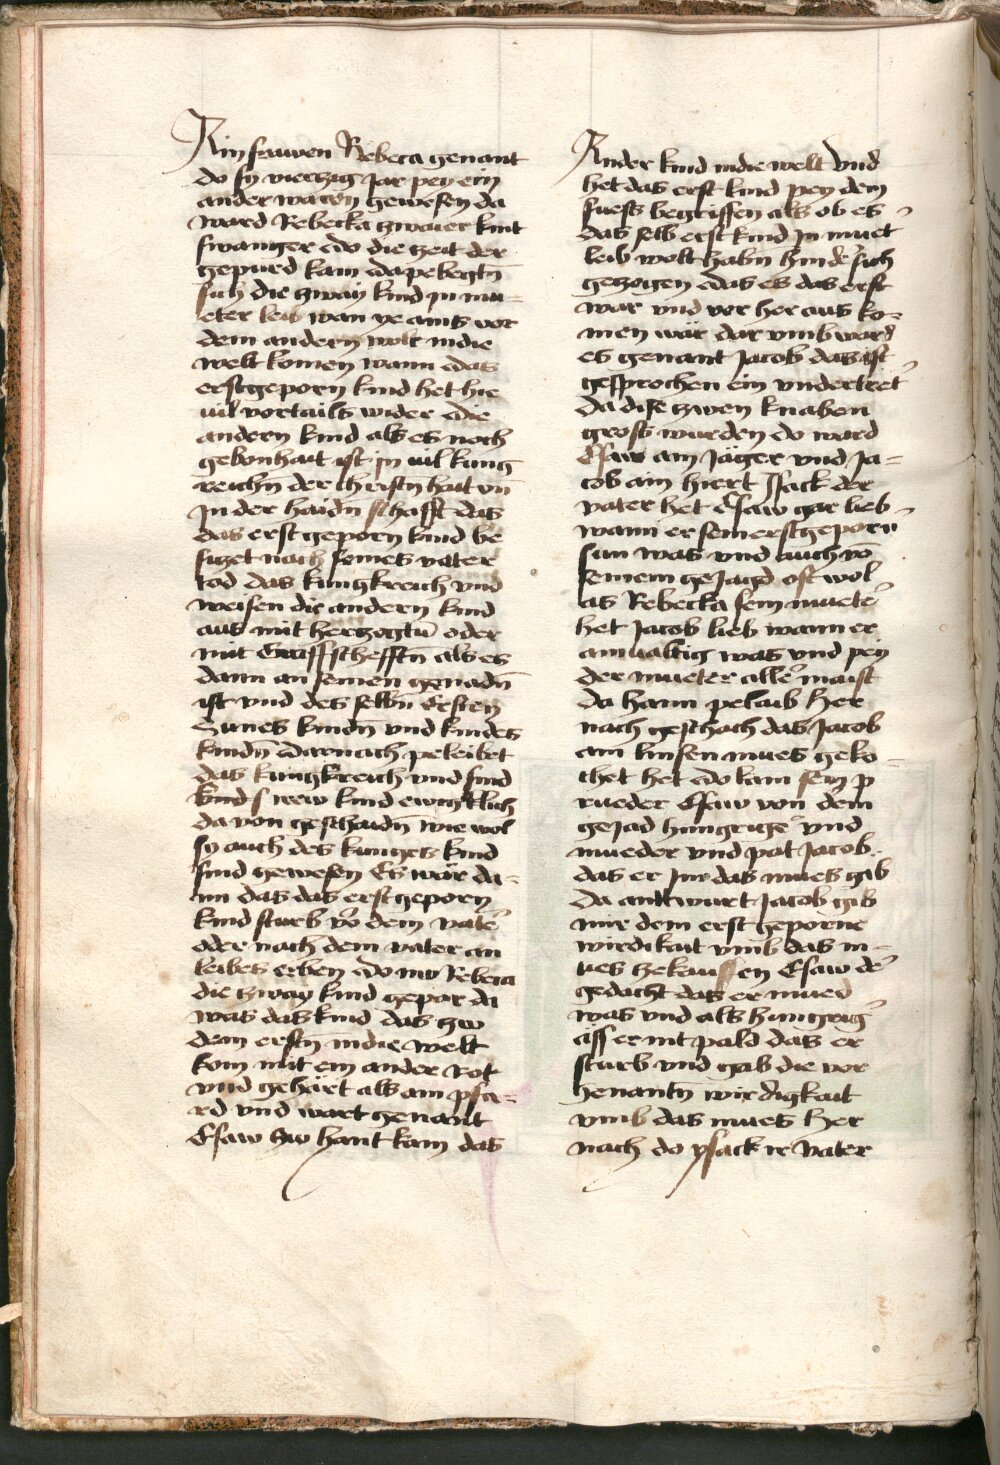 Ain frawen Rebeca genant
do sy vierczig Jar pey ein
ander waren gewesen da
ward Rebecka zwaier kint
swanger do die zeit der
gepürd kam da pebegtñ
sich die zway kind in mu-
eter leib wan ye ains vor
dem andern wolt indie
welt komen wann das
erstgeporn kind het hie
uil vortails wider die
andern kind als es noch
gebonhait ist in uil kunig
reichñ der christñhait vñ
in der haidñschafft das
das erst geporn kind be
siczet nach seines vater
tod das kungkreich vnd
weisen die andern kind
aus mit herczogtũ oder
mit Graffschefftñ als es
dann an seinen genadñ
ist vnd des selbñ Ersten
Sunes kindñ vnd kindes
kindñ darnach peleibet
das kungkreich vnd sind
kinds new kind ewigklich
da von geschaidñ wie wol
sy auch des kuniges kind
sind gewesen Es wär da-
nn das das erst geporn
kind sturb vo dem vate
oder nach dem vater an
leibes erben do nw Rebeca
die zway kind gepar da
was das kind das zw
dem erstñ indie welt
kom mit ein ander rot
vnd gehäret als ain pfa-
rd vnd wart genant
Esaw Zw hant kam das
Ander kind indie welt vnd
het das erst kind pey dem
fuess begriffen als ob es
das selb erst kind in muet
leib wolt habn hinder sich
gezogen das es das erst
war vnd vor her aus ko-
men wär dar vmb ward
es genant Jacob das ist
gesprochen ein vndertret
da dise zwen knaben
gross wurden do ward
Esaw ain Jäger vnd Ja-
cob ain hiert Jsack der
vater het Esaw gar lieb
wann er sein erstgeporn
sun was vnd auch vo
seinem geJagd oft wol
as Rebecka sein muete
het Jacob lieb wann er
ainualtig was vnd pey
der mueter alle maist
da haim pelaib Her
nach geschach das Jacob
ain linsen mues geko-
chet het do kam sein p
rueder Esaw von dem
geJad hungrige vnd
mueder vnd pat Jacob
das er Jm das mues gib
Da antwurt Jacob gib
mir dem erst geporne
wirdikait vmb das m-
ues zekauffen Esaw de
gedacht das er mued
was vnd als hungrig
äss er nit pald das er
sturb vnd gab die vor
henantñ wirdigkait
vmb das mues Her
nach do ysack ir vater